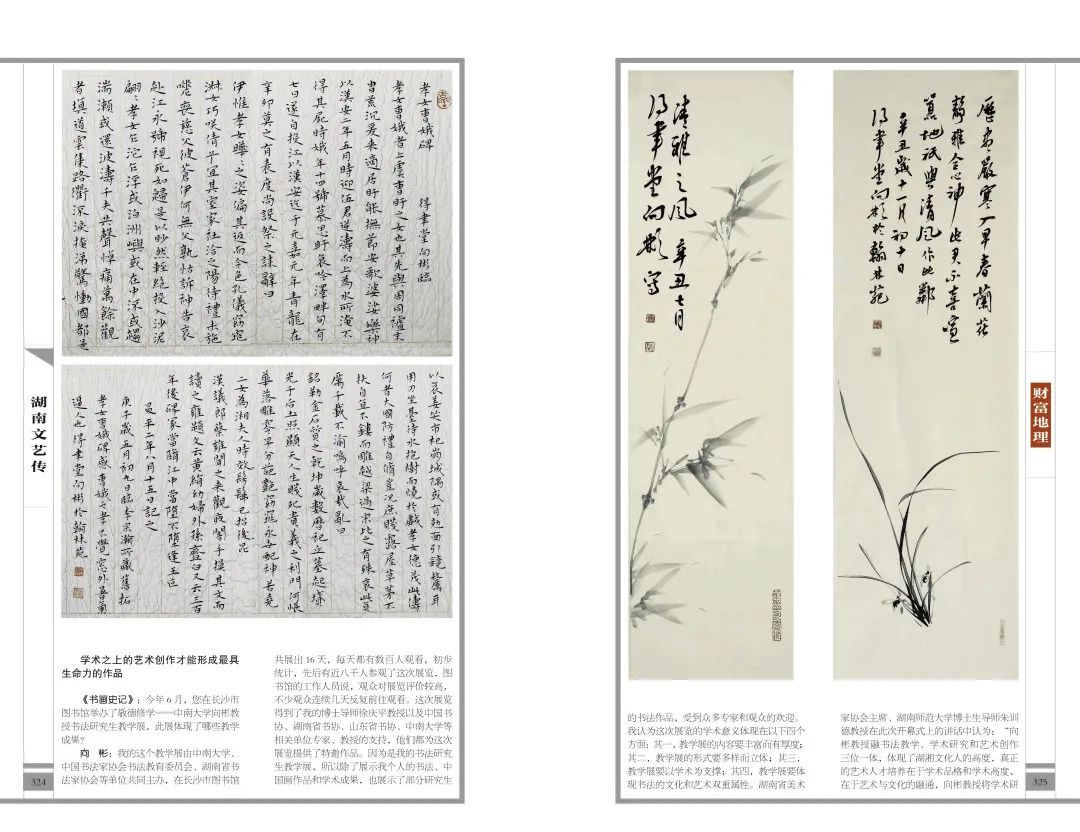 孝女曹娥碑 得書堂向彬臨
孝女曹娥者上虞曹盱之女也其先與周同祖末
胄荒沉爰来適居盱能撫節安歌婆娑樂神
以漢安二年五月時迎伍君逆濤而上為水所淹不
得其屍時娥年十四號慕思盱哀吟澤畔旬有
七日遂自投江以漢安迄于元嘉元年青龍在
辛卯莫之有表度尚設祭之誄辭曰
伊惟孝女曄〻之姿偏其返而令色孔儀窈窕
淑女巧咲倩兮宜其室家在洽之陽待禮未施
嗟喪慈父彼蒼伊何無父孰怙訴神告哀
赴江永號視死如歸是以眇然輕絕投入沙泥
翩〻孝女乍沉乍浮或泊洲嶼或在中流或趨
湍瀨或還波濤千夫共聲悼痛萬餘觀
者填道雲集路衢流淚掩涕驚慟國都是
以哀姜哭市杞崩城隅或有尅面引鏡剺耳
用刀坐臺待水抱樹而燒於戲孝女德茂此儔
何者大國防禮自脩豈况庶賤露屋草茅不
扶自直不鏤而雕越梁過宋比之有殊哀此貞
厲千載不渝嗚呼哀哉亂曰
銘勒金石質之乾坤歲數曆祀立墓起墳
光于后土照顯夫人生賤死貴義之利門何悵
華落雕零早分葩艷窈窕永世配神若堯
二女為湘夫人時效髣髴以招後昆
漢議郎蔡雍聞之来觀夜闇手摸其文而
讀之雍題文云黃絹幼婦外孫齏臼又云三百
年後碑冢當墮江中當墮不墮逢王叵
昇平二年八月十五日記之
庚子歲五月初九日臨李宗瀚所藏舊拓
孝女曹娥碑感曹娥之孝不覺窓外
逼人也得書堂向彬於翰林苑
湖南文艺传
学术之上的艺术创作才能形成最具
生命力的作品
《书画史记》：今年 6 月，您在长沙市
图书馆举办了敏德修学——中南大学向彬教
授书法研究生教学展，此展体现了哪些教学
成果？
向　彬：我的这个教学展由中南大学、
中国书法家协会书法教育委员会、湖南省书
法家协会等单位共同主办，在长沙市图书馆
共展出 16 天，每天都有数百人观看，初步
统计，先后有近八千人参观了这次展览，图
书馆的工作人员说，观众对展览评价较高，
不少观众连续几天反复前往观看。这次展览
得到了我的博士导师徐庆平教授以及中国书
协、湖南省书协、山东省书协、中南大学等
相关单位专家、教授的支持，他们都为这次
展览提供了特邀作品。因为是我的书法研究
生教学展，所以除了展示我个人的书法、中
国画作品和学术成果，也展示了部分研究生
324
清雅之风 辛丑七月
得書堂向彬寫
歷盡嚴寒入早春蘭花
靜雅合心神此君不喜喧
囂地祇與清風作比鄰
辛丑歲十一月初十日
得書堂向彬於翰林苑
财富地理
的书法作品，受到众多专家和观众的欢迎。
我认为这次展览的学术意义体现在以下四个
方面：其一，教学展的内容要丰富而有厚度；
其二，教学展的形式要多样而立体；其三，
教学展要以学术为支撑；其四，教学展要体
现书法的文化和艺术双重属性。湖南省美术
家协会主席、湖南师范大学博士生导师朱训
德教授在此次开幕式上的讲话中认为：“向
彬教授融书法教学、学术研究和艺术创作
三位一体，体现了湖湘文化人的高度，真正
的艺术人才培养在于学术品格和学术高度，
在于艺术与文化的融通，向彬教授将学术研
325